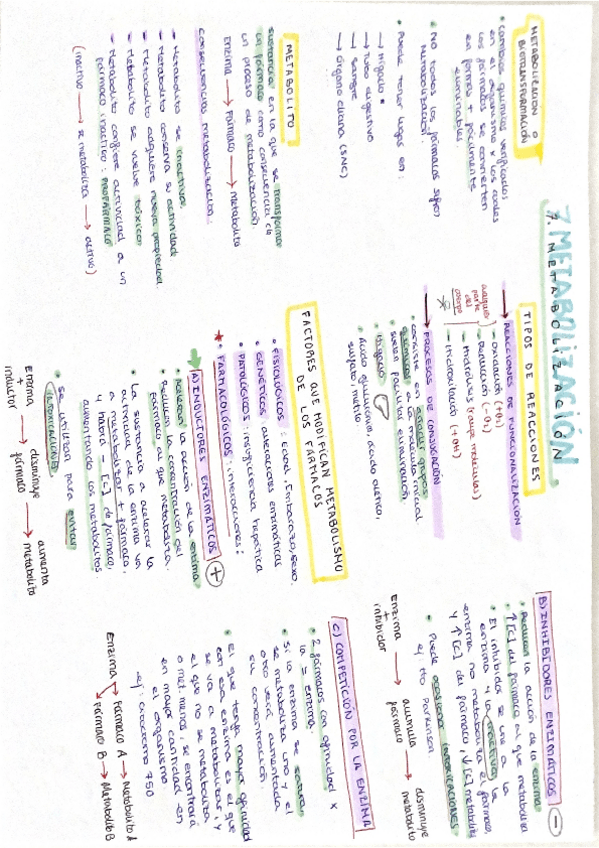 7. METABOLIZACIÓN
7. METABOLIZACIÓN
METABOLIZACIÓN O
BIOTRANSFORMACIÓN
• Cambios químicos verificados
en el organismo x los cuales
los fármacos se convierten
en formas + fácilmente
eliminables.
• NO todos los fármacos sufren
METABOLIZACIÓN.
• Puede tener lugar en:
→ Hígado *
→ Tubo digestivo
→ Sangre
→ Órgano diana (SNC)
METABOLITO
sustancia en la que se transforma
un fármaco como consecuencia de
un proceso de metabolización.
Enzima → Fármaco → Metabolito
Consecuencias metabolización:
- Metabolito se inactiva.
- Metabolito conserva su actividad
- Metabolito adquiere nueva propiedad
- Metabolito se vuelve tóxico
- Metabolito confiere actividad a un
fármaco inactivo: PROFÁRMACO
(inactivo → se metaboliza → activo)
TIPOS DE REACCIONES
→ REACCIONES DE FUNCIONALIZACIÓN
- Oxidación (+O₂)
- Reducción (-O₂)
- Hidrólisis (rompe moléculas)
- Hidroxilación (+OH)
cualquier
parte
del
cuerpo
→ PROCESOS DE CONJUGACIÓN
• Consiste en acoplar grupos
a molécula inicial
suele facilitar eliminación
• Hígado
• Ácido glucurónico, ácido acético,
sulfato, metilo.
FACTORES QUE MODIFICAN METABOLISMO
DE LOS FÁRMACOS
• FISIOLÓGICOS: Edad, Embarazo, sexo.
• GENÉTICOS: alteraciones enzimáticas
• PATOLÓGICOS: insuficiencia hepática
* • FARMACOLÓGICOS: interacciones:
A) INDUCTORES ENZIMÁTICOS +
• Aceleran la acción de la enzima
• Reducen la concentración del
fármaco al que metaboliza.
• La sustancia a acelerar la
actividad de la enzima va
a metabolizar + fármaco,
y habrá - [c] de fármaco,
aumentando los metabolitos.
• Se utilizan para evitar
intoxicaciones
Enzima
+
inductor → disminuye
fármaco → aumenta
metabolito
B) INHIBIDORES ENZIMÁTICOS -
• Reducen la acción de la enzima
• ↑[c] del fármaco al que metaboliza
• El inhibidor se une a la
enzima y la inactiva, la
enzima no metaboliza el fármaco,
y ↑[c] del fármaco, ↓[c] metabolito
• Puede ocasionar intoxicaciones
ej: tto Parkinson.
Enzima
+
inhibidor → acumula
fármaco → disminuye
metabolito
C) COMPETICIÓN POR LA ENZIMA
• 2 fármacos con afinidad x
la = enzima.
• Si la enzima se satura
se metaboliza uno y el
otro verá aumentada
su concentración.
• El que tenga mayor afinidad
con esa enzima es el que
se va a metabolizar, y
el que no se metaboliza
o met. menos, se encontrará
en mayor cantidad en
el organismo.
ej: citocromo 750
Enzima → Fármaco A → Metabolito A
→ Fármaco B → Metabolito B